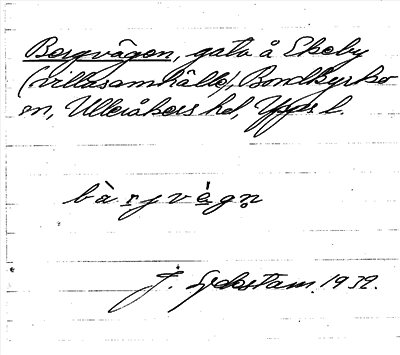 Bergvägen, gata å Ekeby
(villasamhälle), Bondkyrko
sn, Ulleråkers hd, Upps l.
bàrjvègn
J. 1939.